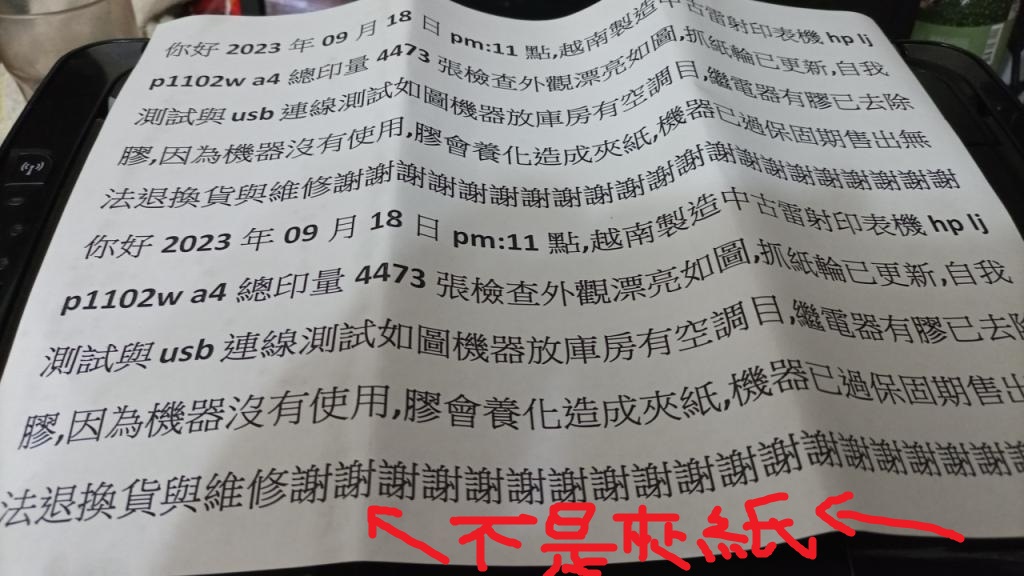 你好 2023 年 09 月 18 日 pm:11 點,越南製造中古雷射印表機 hp lj
p1102w a4 總印量 4473 張檢查外觀漂亮如圖,抓紙輪已更新,自我
測試與 usb 連線測試如圖機器放庫房有空調目,繼電器有膠已去除
膠,因為機器沒有使用,膠會養化造成夾紙,機器已過保固期售出無
法退換貨與維修謝謝謝謝謝謝謝謝謝謝謝謝謝謝謝謝謝謝謝謝
你好 2023 年 09 月 18 日 pm:11 點,越南製造中古雷射印表機 hp lj
p1102w a4 總印量 4473 張檢查外觀漂亮如圖,抓紙輪已更新,自我
測試與 usb 連線測試如圖機器放庫房有空調目,繼電器有膠已去除
膠,因為機器沒有使用,膠會養化造成夾紙,機器已過保固期售出
法退換貨與維修謝謝謝謝謝謝謝謝謝謝謝謝謝謝謝謝謝謝謝
不是夾紙